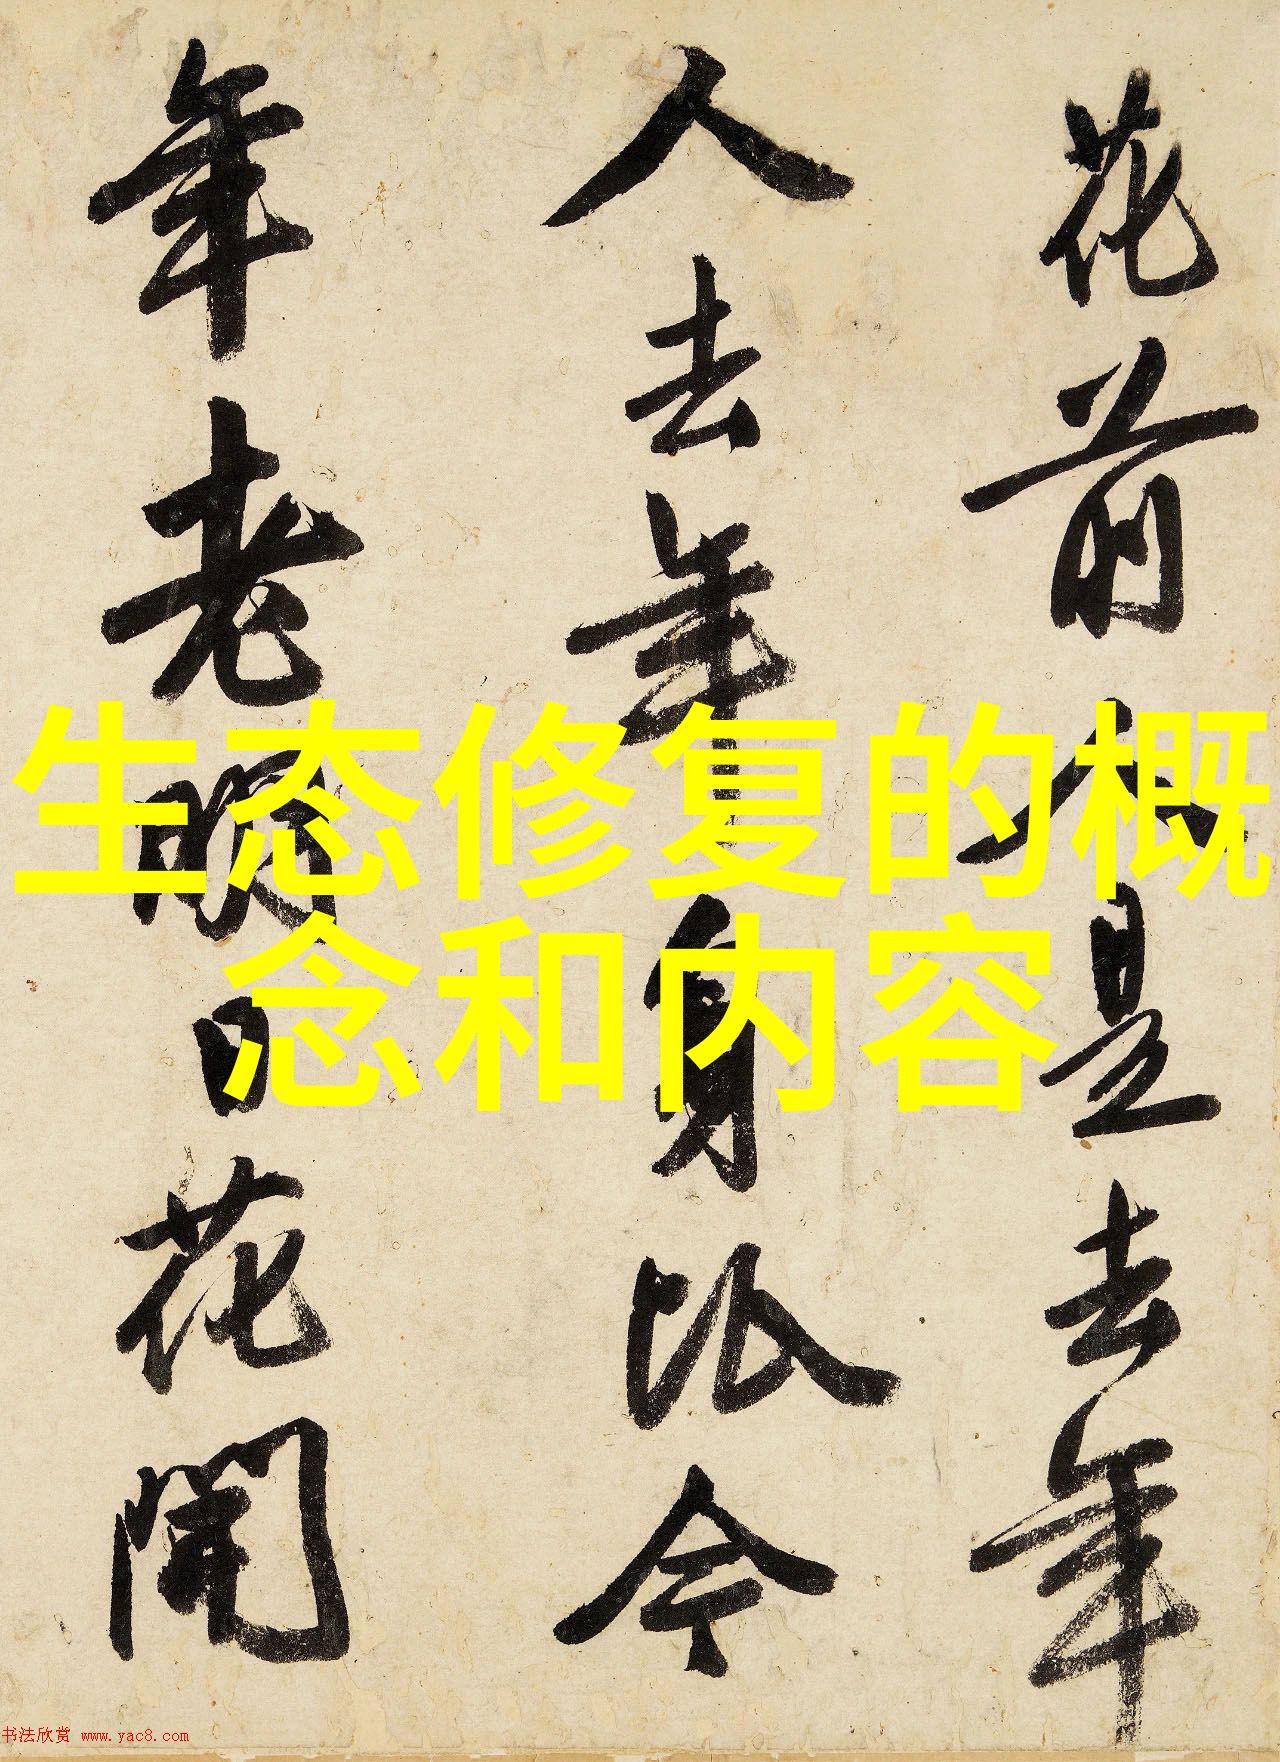 花前人是去年
人去年身比今
年老明日花開
生态修复的概
念和内容
书法欣赏 www.yac8.com